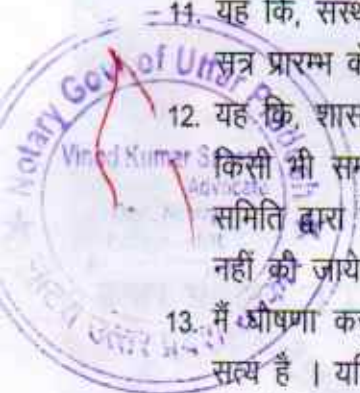 11. यह कि, संस्थ
सत्र प्रारम्भ क
12. यह कि, शास
किसी भी सम
समिति द्वारा
नहीं की जाये
13. मैं घोषणा कर
सत्य है । यदि
Notary Gov of Uttar Pradesh
Vinod Kumar S
Advocate
उत्तर प्रदेश